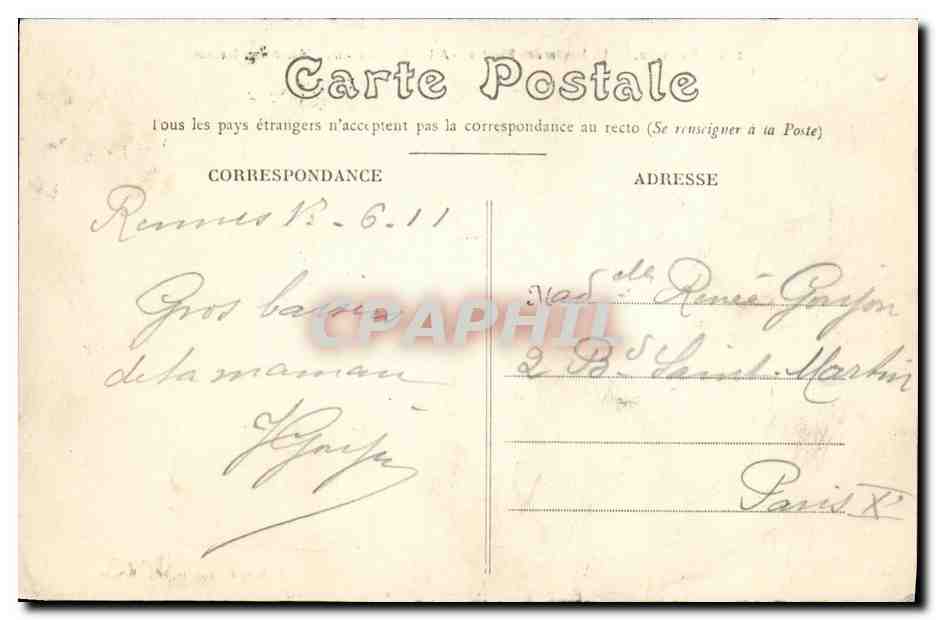 Carte Postale
Tous les pays étrangers n'acceptent pas la correspondance au recto (Se renseigner à la Poste)
CORRESPONDANCE
ADRESSE
Rennes - 6 - 11
Gros baisers
de ta maman
Mad elle Renée Goujon
2 Bd Saint-Martin
Paris Xe
CPAPHIL